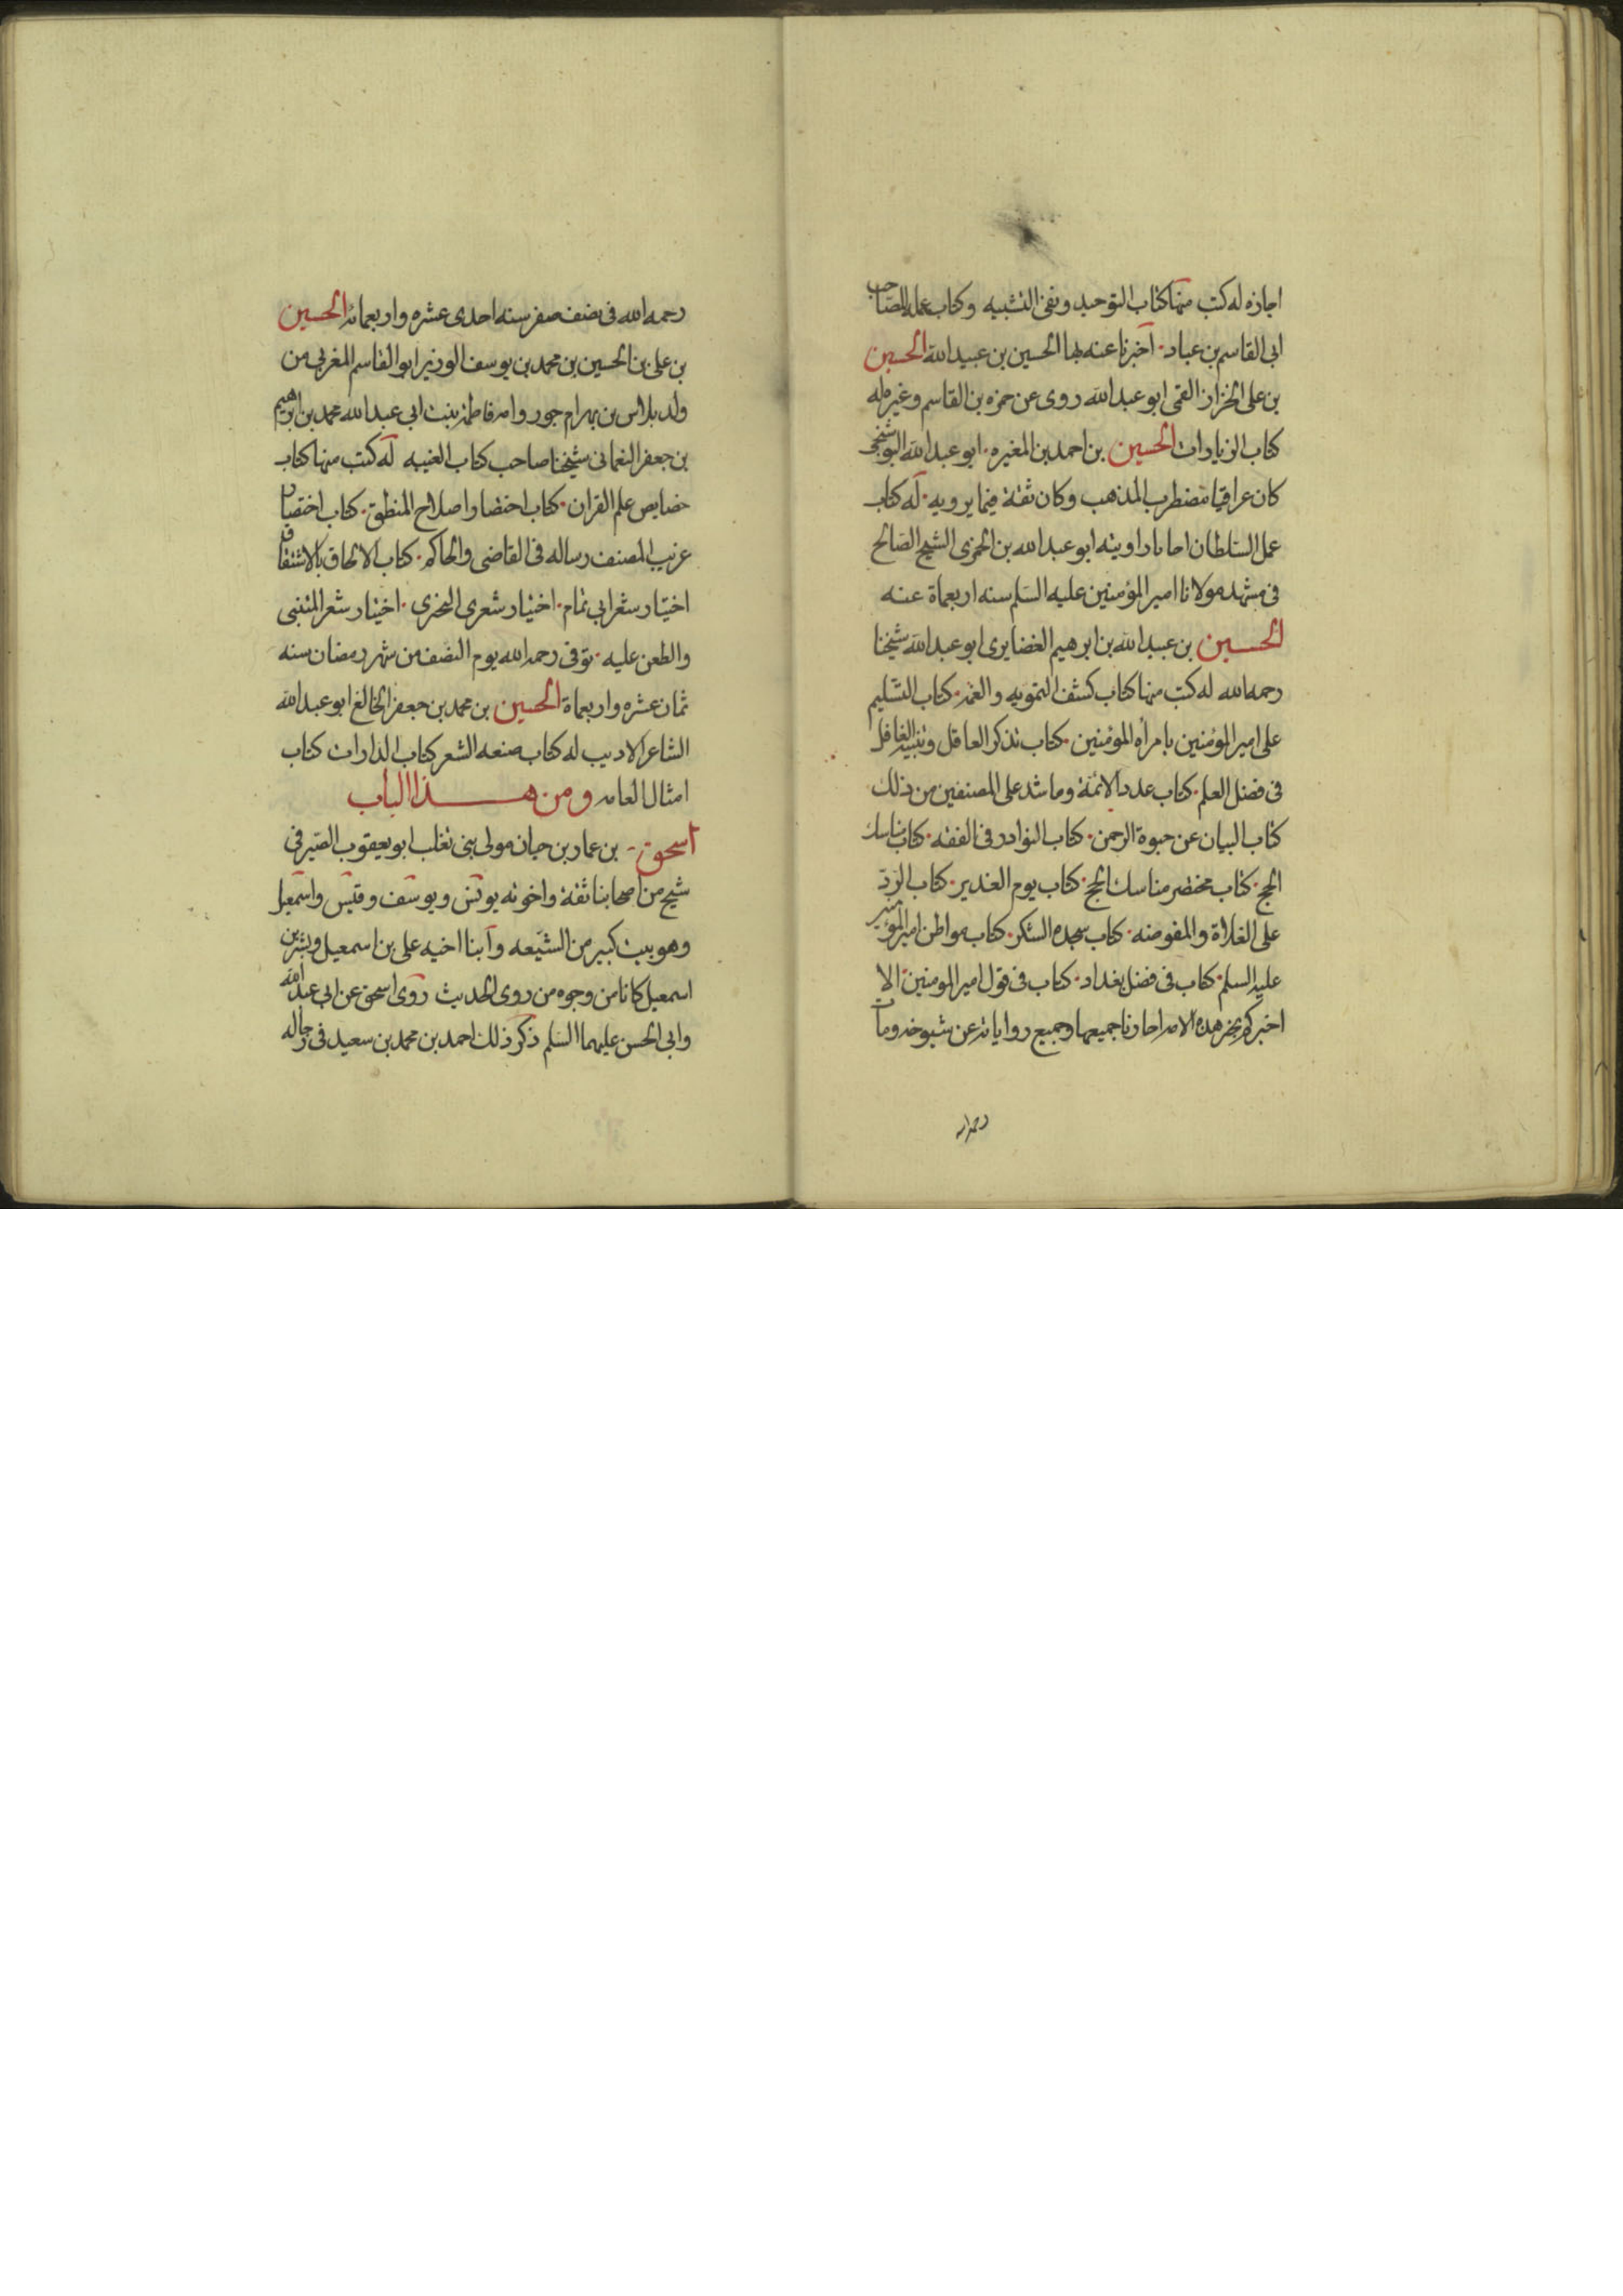 اجازه له كتب منها كتاب التوحيد ونفى التشبيه وكتاب عمله للصاحب
ابى القاسم بن عباد. اخبرنا عنه بها الحسين بن عبيد الله الحسين
بن على الخزاز القمى ابو عبد الله روى عن حمزه بن القاسم وغيره له
كتاب الزيارات الحسين بن احمد بن المغيره. ابو عبد الله البوشنجى
كان عراقيا مضطرب المذهب وكان ثقة فيما يرويه. له كتاب
عمل السلطان اجازنا روايته ابو عبد الله بن الخمرى الشيخ الصالح
فى مشهد مولانا امير المؤمنين عليه السلم سنه اربعماة عنه
الحسين بن عبيد الله بن ابرهيم الغضايرى ابو عبد الله شيخنا
رحمه الله له كتب منها كتاب كشف التمويه والغمه. كتاب التسليم
على امير المؤمنين بامرأه المؤمنين. كتاب تذكر العاقل وتنبيه الغافل
فى فضل العلم. كتاب عدد الائمة وما شذ على المصنفين من ذلك
كتاب البيان عن حبوة الرحمن. كتاب النوادر فى الفقه. كتاب مناسك
الحج. كتاب مختصر مناسك الحج. كتاب يوم الغدير. كتاب الرد
على الغلاة والمفوضه. كتاب سجده الشكر. كتاب مواطن امير المؤمنين
عليه السلم. كتاب فى فضل بغداد. كتاب فى قول امير المومنين. الا
اخبركم بخير هذه الامه اجازنا جميعها وجميع رواياته عن شيوخه ومات
رحمه الله
رحمه الله فى نصف صفر سنه احدى عشره واربعمائه الحسين
بن على بن الحسين بن محمد بن يوسف الوزير ابو القاسم المغربى من
ولد بلاس بن بهرام جور وامه فاطمه بنت ابى عبد الله محمد بن ابرهيم
بن جعفر النعمانى شيخنا صاحب كتاب الغيبه له كتب منها كتاب
خصايص علم القران. كتاب اختصار اصلاح المنطق. كتاب اختصار
غريب المصنف رساله فى القاضى والحاكم. كتاب الالحاق بالاشتقاق
اختيار شعر ابى تمام. اختيار شعرى البحترى. اختيار شعر المتنبى
والطعن عليه. توفى رحمه الله يوم النصف من شهر رمضان سنه
ثمان عشره واربعماة الحسين بن محمد بن جعفر الخالع ابو عبد الله
الشاعر الاديب له كتاب صنعه الشعر كتاب الدارات كتاب
امثال العامه ومن هذا الباب
اسحق بن عمار بن حيان مولى بنى تغلب ابو يعقوب الصيرفى
شيخ من اصحابنا ثقة واخوته يونس ويوسف وقيس واسمعيل
وهو بيت كبير من الشيعه وابنا اخيه على بن اسمعيل وبشر بن
اسمعيل كانا من وجوه من روى الحديث روى اسحق عن ابى عبد الله
وابى الحسن عليهما السلم ذكر ذلك احمد بن محمد بن سعيد فى رجاله